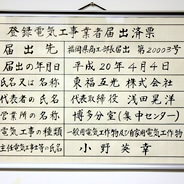 登録電気工事業者届出済票
届出先 福岡県商工部長届出 第20003号
届出の年月日 平成20年4月4日
氏名又は名称 東福互光株式会社
代表者の氏名 代表取締役 浅田晃洋
営業所の名称 博多分室(集中センター)
電気工事の種類 一般用電気工作物及び自家用電気工作物
主任電気工事士等の氏名 小野英幸